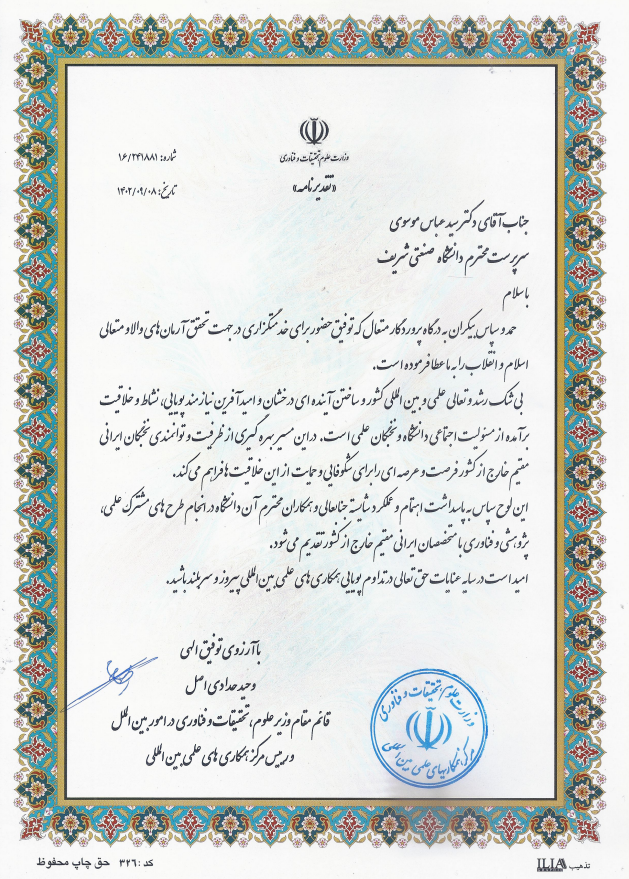 وزارت علوم تحقیقات و فناوری
شماره: ۱۶/۲۴۱۸۸۱
«تقدیرنامه»
تاریخ: ۱۴۰۲/۰۹/۰۸
جناب آقای دکتر سید عباس موسوی
سرپرست محترم دانشگاه صنعتی شریف
با سلام
حمد و سپاس بیکران به درگاه پروردگار متعال که توفیق حضور برای خدمتگزاری در جهت تحقق آرمان‌های والا و متعالی
اسلام و انقلاب را به ما عطا فرموده است.
بی شک رشد و تعالی علمی و بین المللی کشور و ساختن آینده ای درخشان و امید آفرین نیازمند پویایی، نشاط و خلاقیت
برآمده از مسئولیت اجتماعی دانشگاه و نخبگان علمی است. در این مسیر بهره گیری از ظرفیت و توانمندی نخبگان ایرانی
مقیم خارج از کشور فرصت و عرصه ای را برای شکوفایی و حمایت از این خلاقیت ها فراهم می کند.
این لوح سپاس به پاسداشت اهتمام و عملکرد شایسته جنابعالی و همکاران محترم آن دانشگاه در انجام طرح های مشترک علمی،
پژوهشی و فناوری با متخصصان ایرانی مقیم خارج از کشور تقدیم می شود.
امید است در سایه عنایات حق تعالی در تداوم پویایی همکاری های علمی بین المللی پیروز و سربلند باشید.
با آرزوی توفیق الهی
وحید حدادی اصل
قائم مقام وزیر علوم، تحقیقات و فناوری در امور بین الملل
و رییس مرکز همکاری های علمی بین المللی
وزارت علوم، تحقیقات و فناوری
مرکز همکاریهای علمی بین المللی
کد: ۳۲۶ حق چاپ محفوظ
تذهیب ILIA